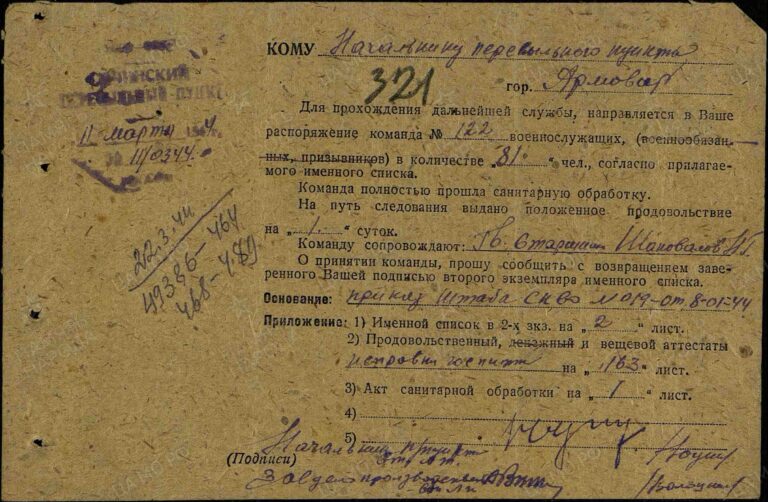 ПЕРЕСЫЛЬНЫЙ ПУНКТ
11 марта
22.3.44
49386-464
468-479
КОМУ Начальнику пересыльного пункта
321
гор. Армовар
Для прохождения дальнейшей службы, направляется в Ваше
распоряжение команда № 122 военнослужащих, (военнообязан-
ных, призывников) в количестве „81“ чел., согласно прилагае-
мого именного списка.
Команда полностью прошла санитарную обработку.
На путь следования выдано положенное продовольствие
на „1.“ суток.
Команду сопровождают: Гв. Старшина Шаповалов
О принятии команды, прошу сообщить с возвращением заве-
ренного Вашей подписью второго экземпляра именного списка.
Основание: приказ Штаба СКВО №019-от 8-01-44
Приложение: 1) Именной список в 2-х экз. на „2“ лист.
2) Продовольственный, денежный и вещевой аттестаты
на „163“ лист.
3) Акт санитарной обработки на „1“ лист.
4)
5)
(Подписи) Начальник
Зав делопроизводством